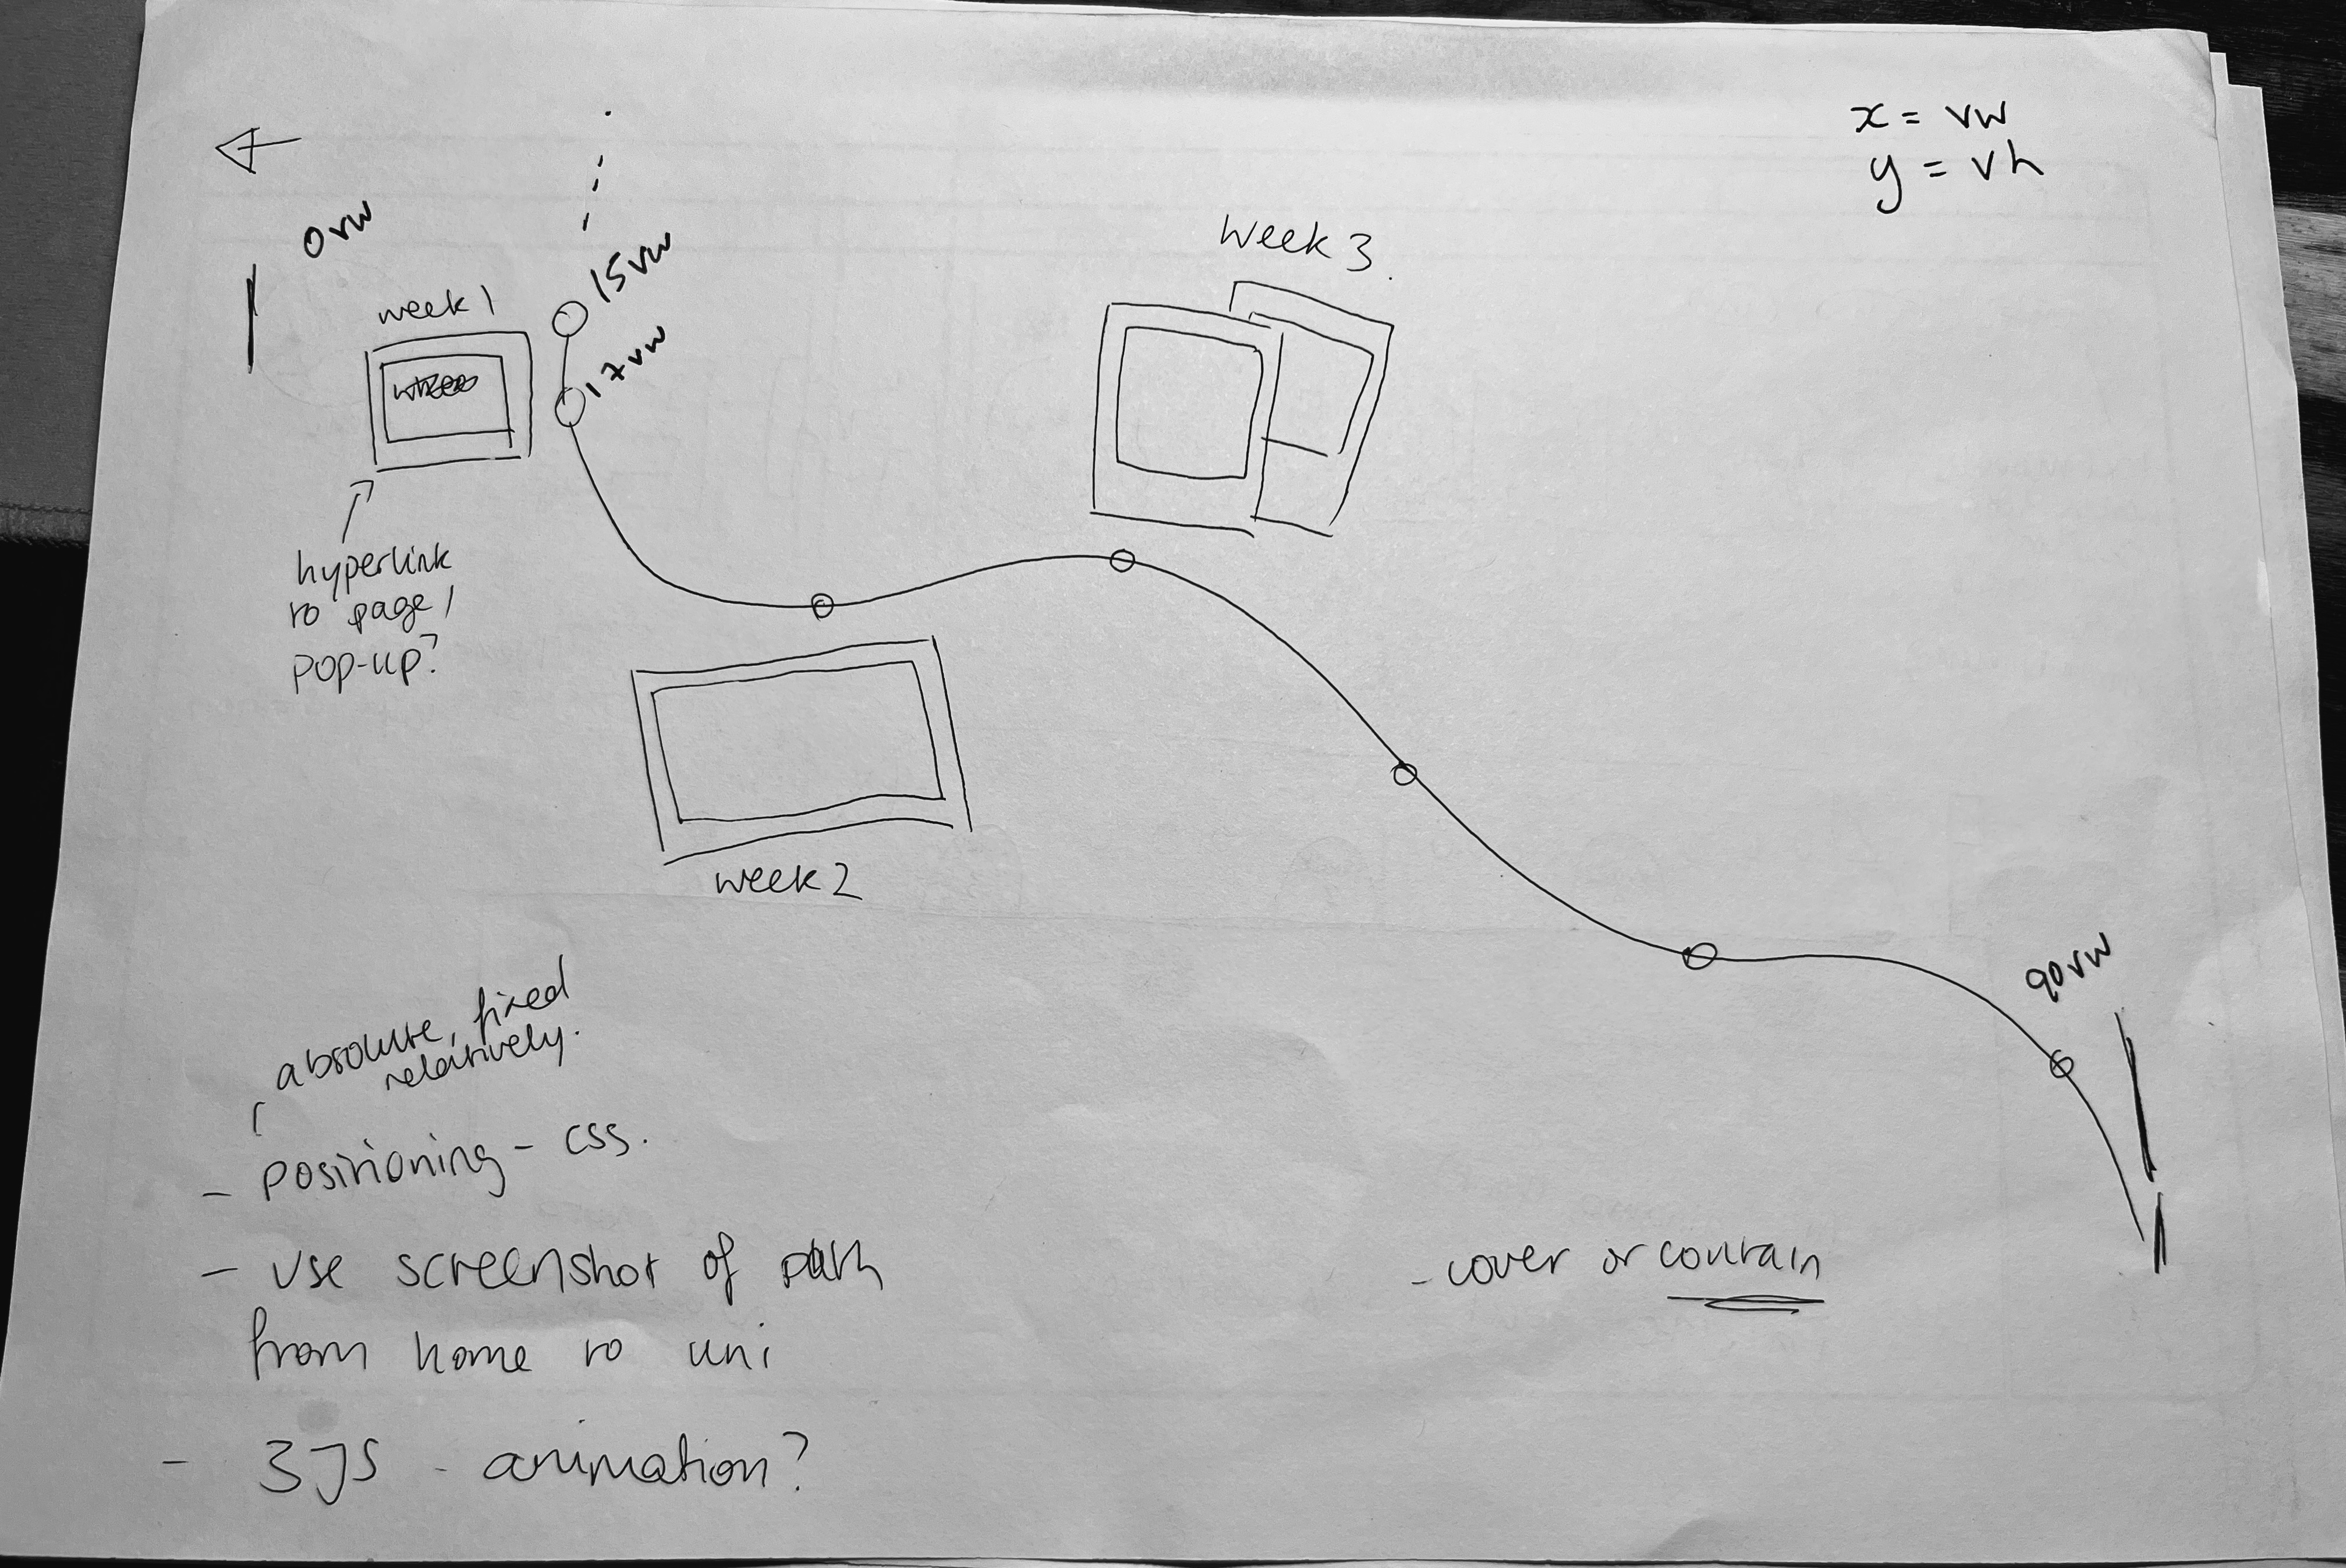 x = vw
y = vh
0vw
15vw
17vw
week 1
week 3
hyperlink
to page /
pop-up?
week 2
90vw
absolute, fixed
relatively.
- positioning - css.
- use screenshot of path
from home to uni
- 3JS - animation?
- cover or contain